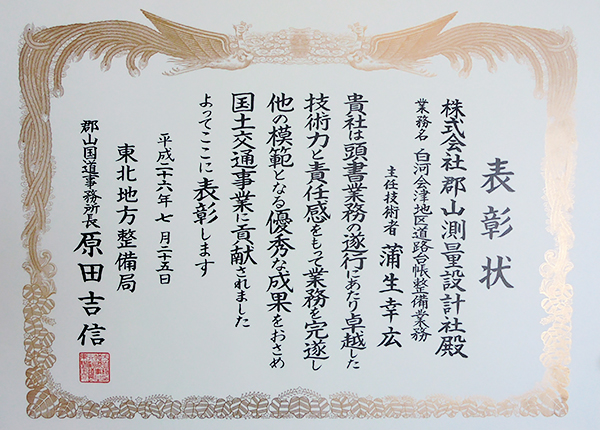 表彰状
株式会社郡山測量設計社殿
業務名 白河会津地区道路台帳整備業務
主任技術者 蒲生幸広
貴社は頭書業務の遂行にあたり卓越した
技術力と責任感をもって業務を完遂し
他の模範となる優秀な成果をおさめ
国土交通事業に貢献されました
よってここに表彰します
平成二十六年七月二十五日
東北地方整備局
郡山国道事務所長 原田吉信